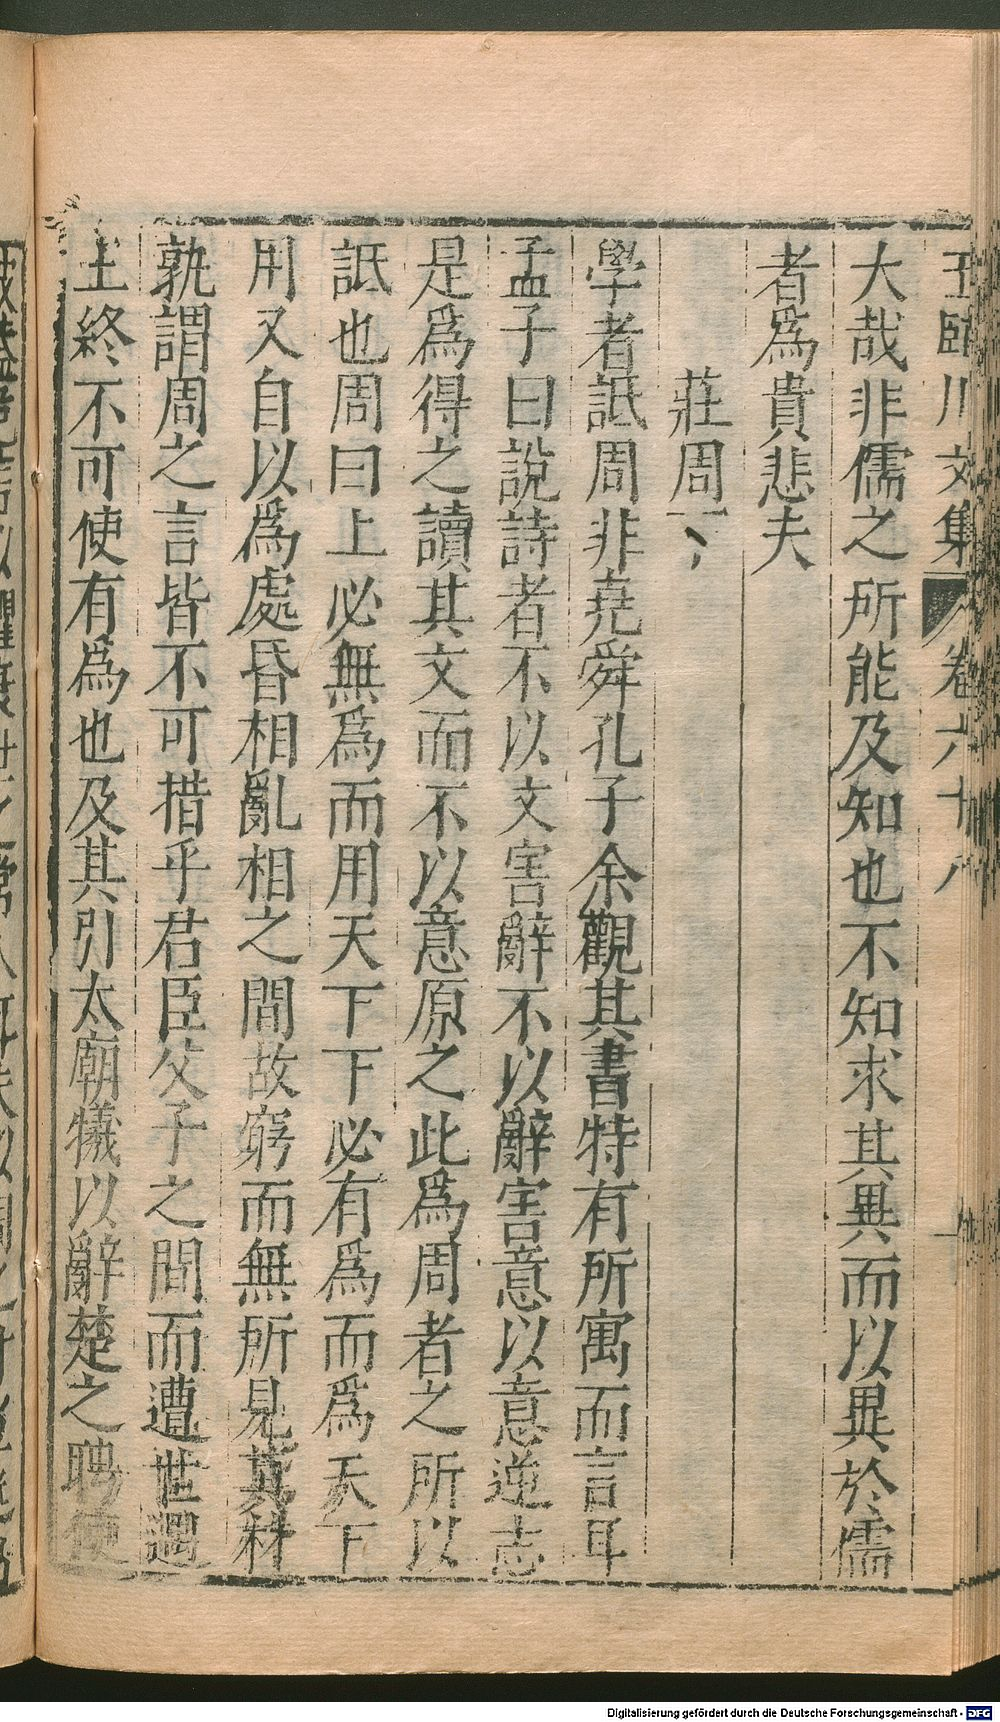 王臨川文集 卷六十八
大哉非儒之所能及知也不知求其異而以異於儒
者爲貴悲夫
莊周下
學者詆周非堯舜孔子余觀其書特有所寓而言耳
孟子曰說詩者不以文害辭不以辭害意以意逆志
是爲得之讀其文而不以意原之此爲周者之所以
詆也周曰上必無爲而用天下下必有爲而爲天下
用又自以爲處昏相亂相之間故窮而無所見其材
孰謂周之言皆不可措乎君臣父子之間而遭世遇
主終不可使有爲也及其引太廟犧以辭楚之聘使
Digitalisierung gefördert durch die Deutsche Forschungsgemeinschaft - DFG